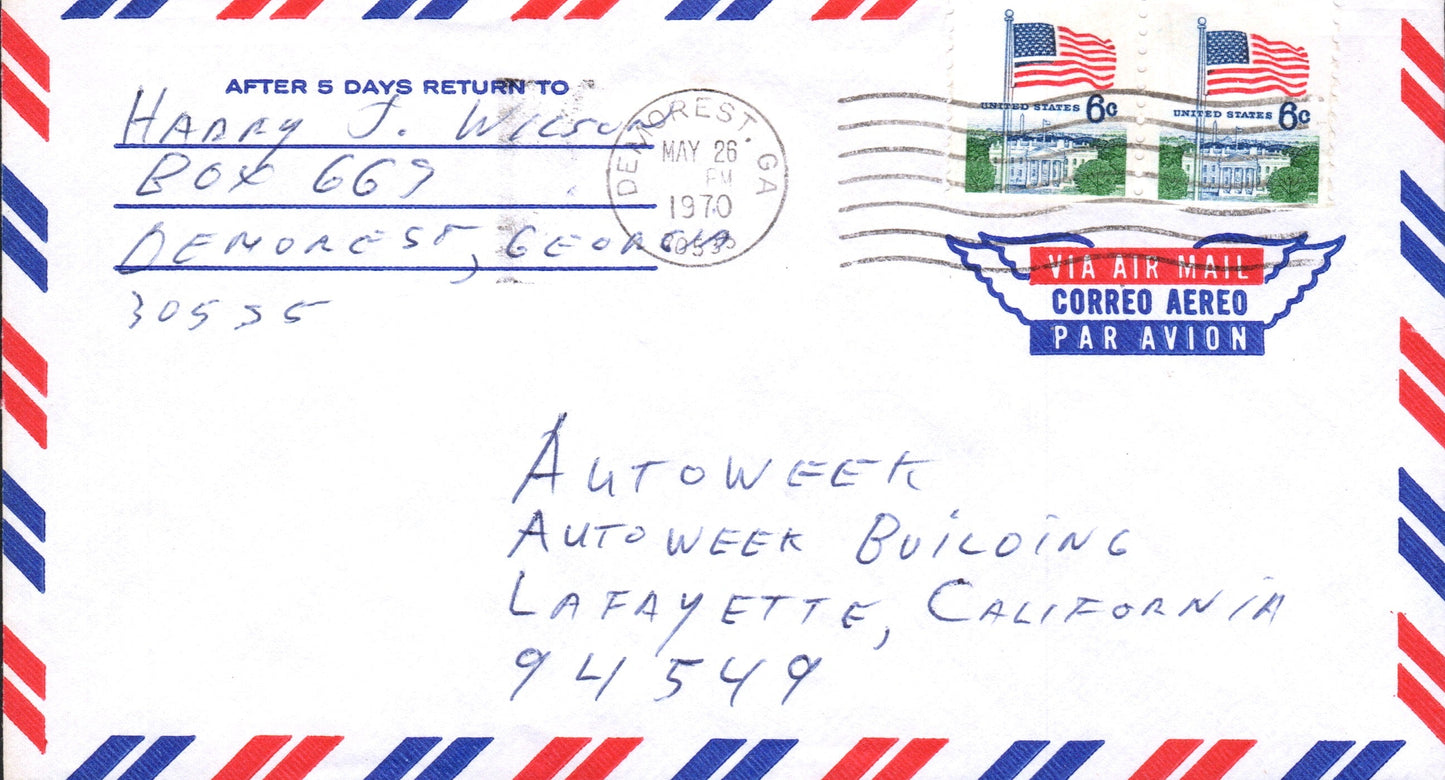 AFTER 5 DAYS RETURN TO
HARRY J. WILSON
BOX 669
DEMOREST, GEORGIA
30535
DEMOREST, GA
MAY 26
PM
1970
30535
UNITED STATES 6c
UNITED STATES 6c
VIA AIR MAIL
CORREO AEREO
PAR AVION
AUTOWEEK
AUTOWEEK BUiLDiNG
LAFAYETTE, CALIFORNiA
94549